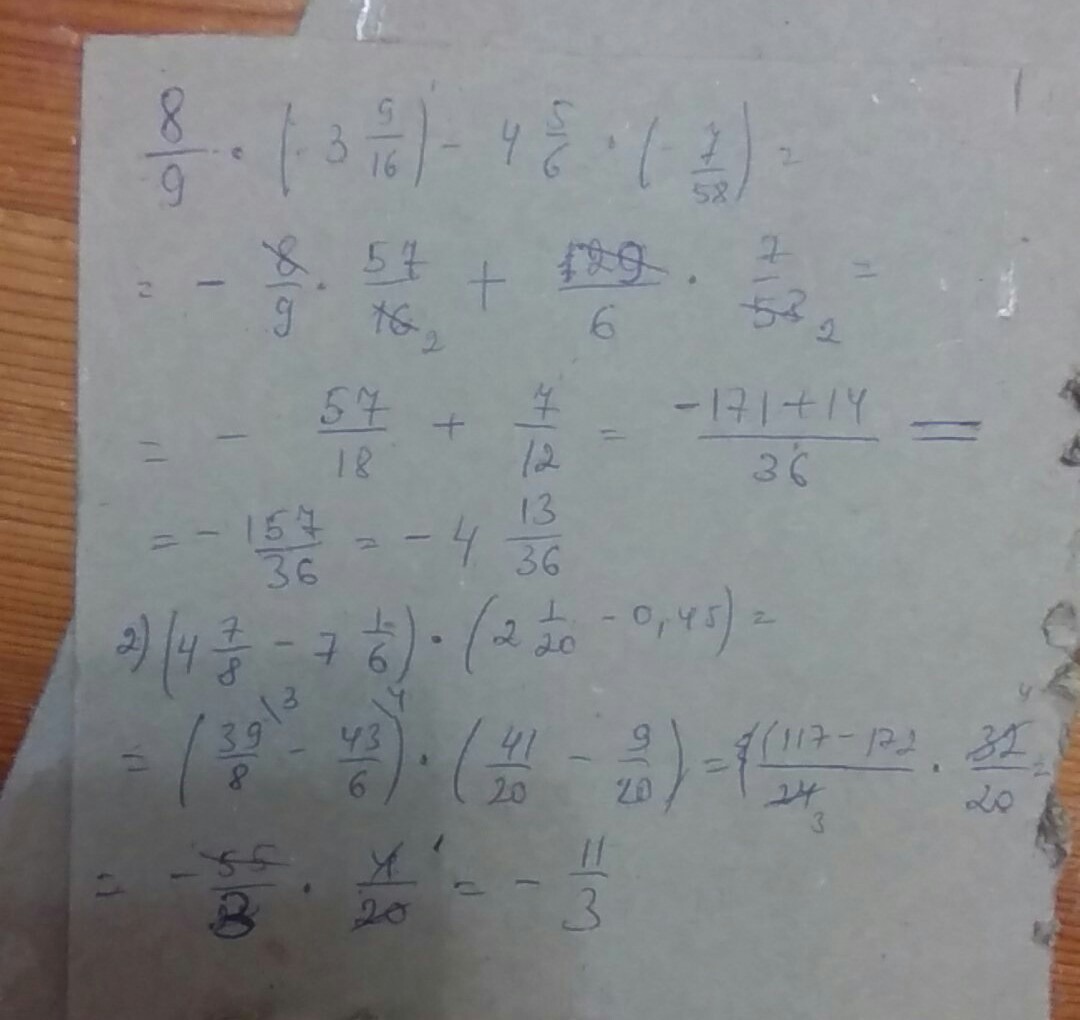 8/9 · (- 3 9/16) - 4 5/6 · (- 7/58) =
= - 8/9 · 57/16 2 + 29/6 · 7/58 2 =
= - 57/18 + 7/12 = -171+14/36 =
= - 157/36 = - 4 13/36
2) (4 7/8 - 7 1/6) · (2 1/20 - 0,45) =
= (39/8 \3 - 43/6 \4) · (41/20 - 9/20) = (117-172/24 3 · 32 4/20 =
= - 55/3 · 4 1/20 = - 11/3